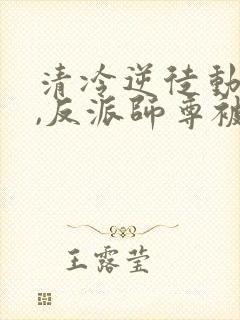 清冷逆徒動
,反派師尊被
王露莹